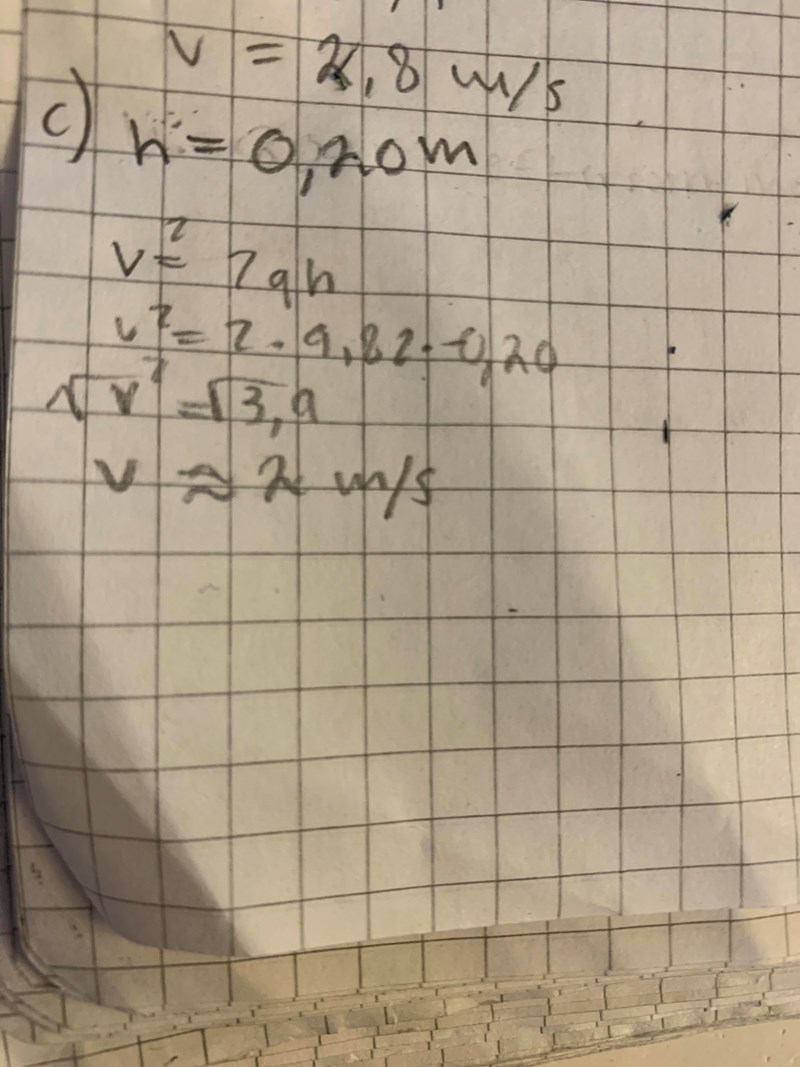 v = 2,8 m/s
c) h = 0,20 m
v² = 2gh
v² = 2 · 9,82 · 0,20
√v² = √3,9
v ≈ 2 m/s